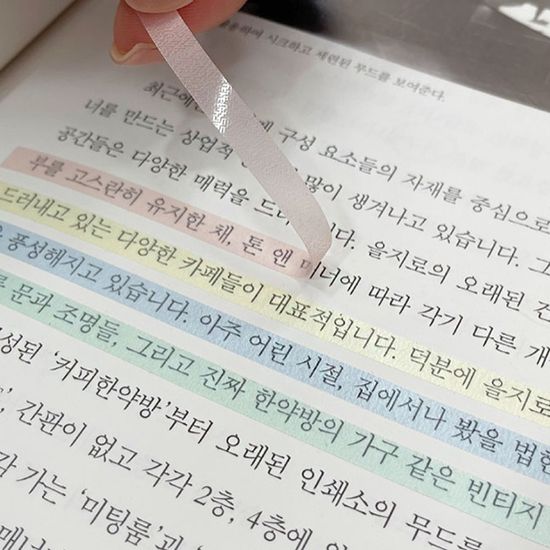 활용하며 시크하고 세련된 무드를 보여준다.
최근에 구성 요소들의 자재를 중심으로
너를 만드는 상업적 많이 생겨나고 있습니다. 그
공간들은 다양한 매력을 드 니다. 을지로의 오래된 건
부를 고스란히 유지한 채, 톤 앤 매너에 따라 각기 다른 개
드러내고 있는 다양한 카페들이 대표적입니다. 덕분에 을지로
풍성해지고 있습니다. 아주 어린 시절, 집에서나 봤을 법한
문과 조명들, 그리고 진짜 한약방의 가구 같은 빈티지
성된 '커피한약방'부터 오래된 인쇄소의 무드를
간판이 없고 각각 2층, 4층에
각 가는 '미팅룸'과